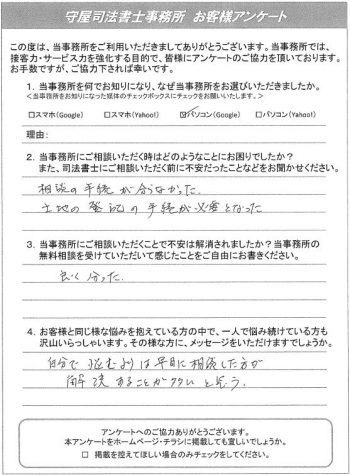 守屋司法書士事務所 お客様アンケート
この度は、当事務所をご利用いただきましてありがとうございます。当事務所では、
接客力・サービス力を強化する目的で、皆様にアンケートのご協力を頂いております。
お手数ですが、ご協力下されば幸いです。
1. 当事務所を何でお知りになり、なぜ当事務所をお選びいただきましたか。
<当事務所をお知りになった媒体のチェックボックスにチェックをお願いいたします。>
□スマホ(Google) □スマホ(Yahoo!) ☑パソコン(Google) □パソコン(Yahoo!)
理由:
2. 当事務所にご相談いただく時はどのようなことにお困りでしたか?
また、司法書士にご相談いただく前に不安だったことなどをお聞かせください。
相続の手続が分らなかった。
土地の登記の手続が必要となった
3. 当事務所にご相談いただくことで不安は解消されましたか?当事務所の
無料相談を受けていただいて感じたことをご自由にお書きください。
良く分った。
4. お客様と同じ様な悩みを抱えている方の中で、一人で悩み続けている方も
沢山いらっしゃいます。その様な方に、メッセージをいただけますでしょうか。
自分で悩むよりは早目に相談した方が
解決することが多いと思う。
アンケートへのご協力ありがとうございます。
本アンケートをホームページ・チラシに掲載しても宜しいでしょうか。
□ 掲載を控えてほしい場合のみチェックをしてください。